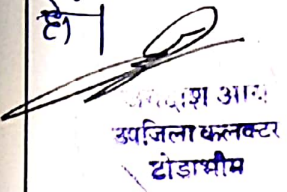 है।
आर्य
उपजिला कलक्टर
टोडाभीम